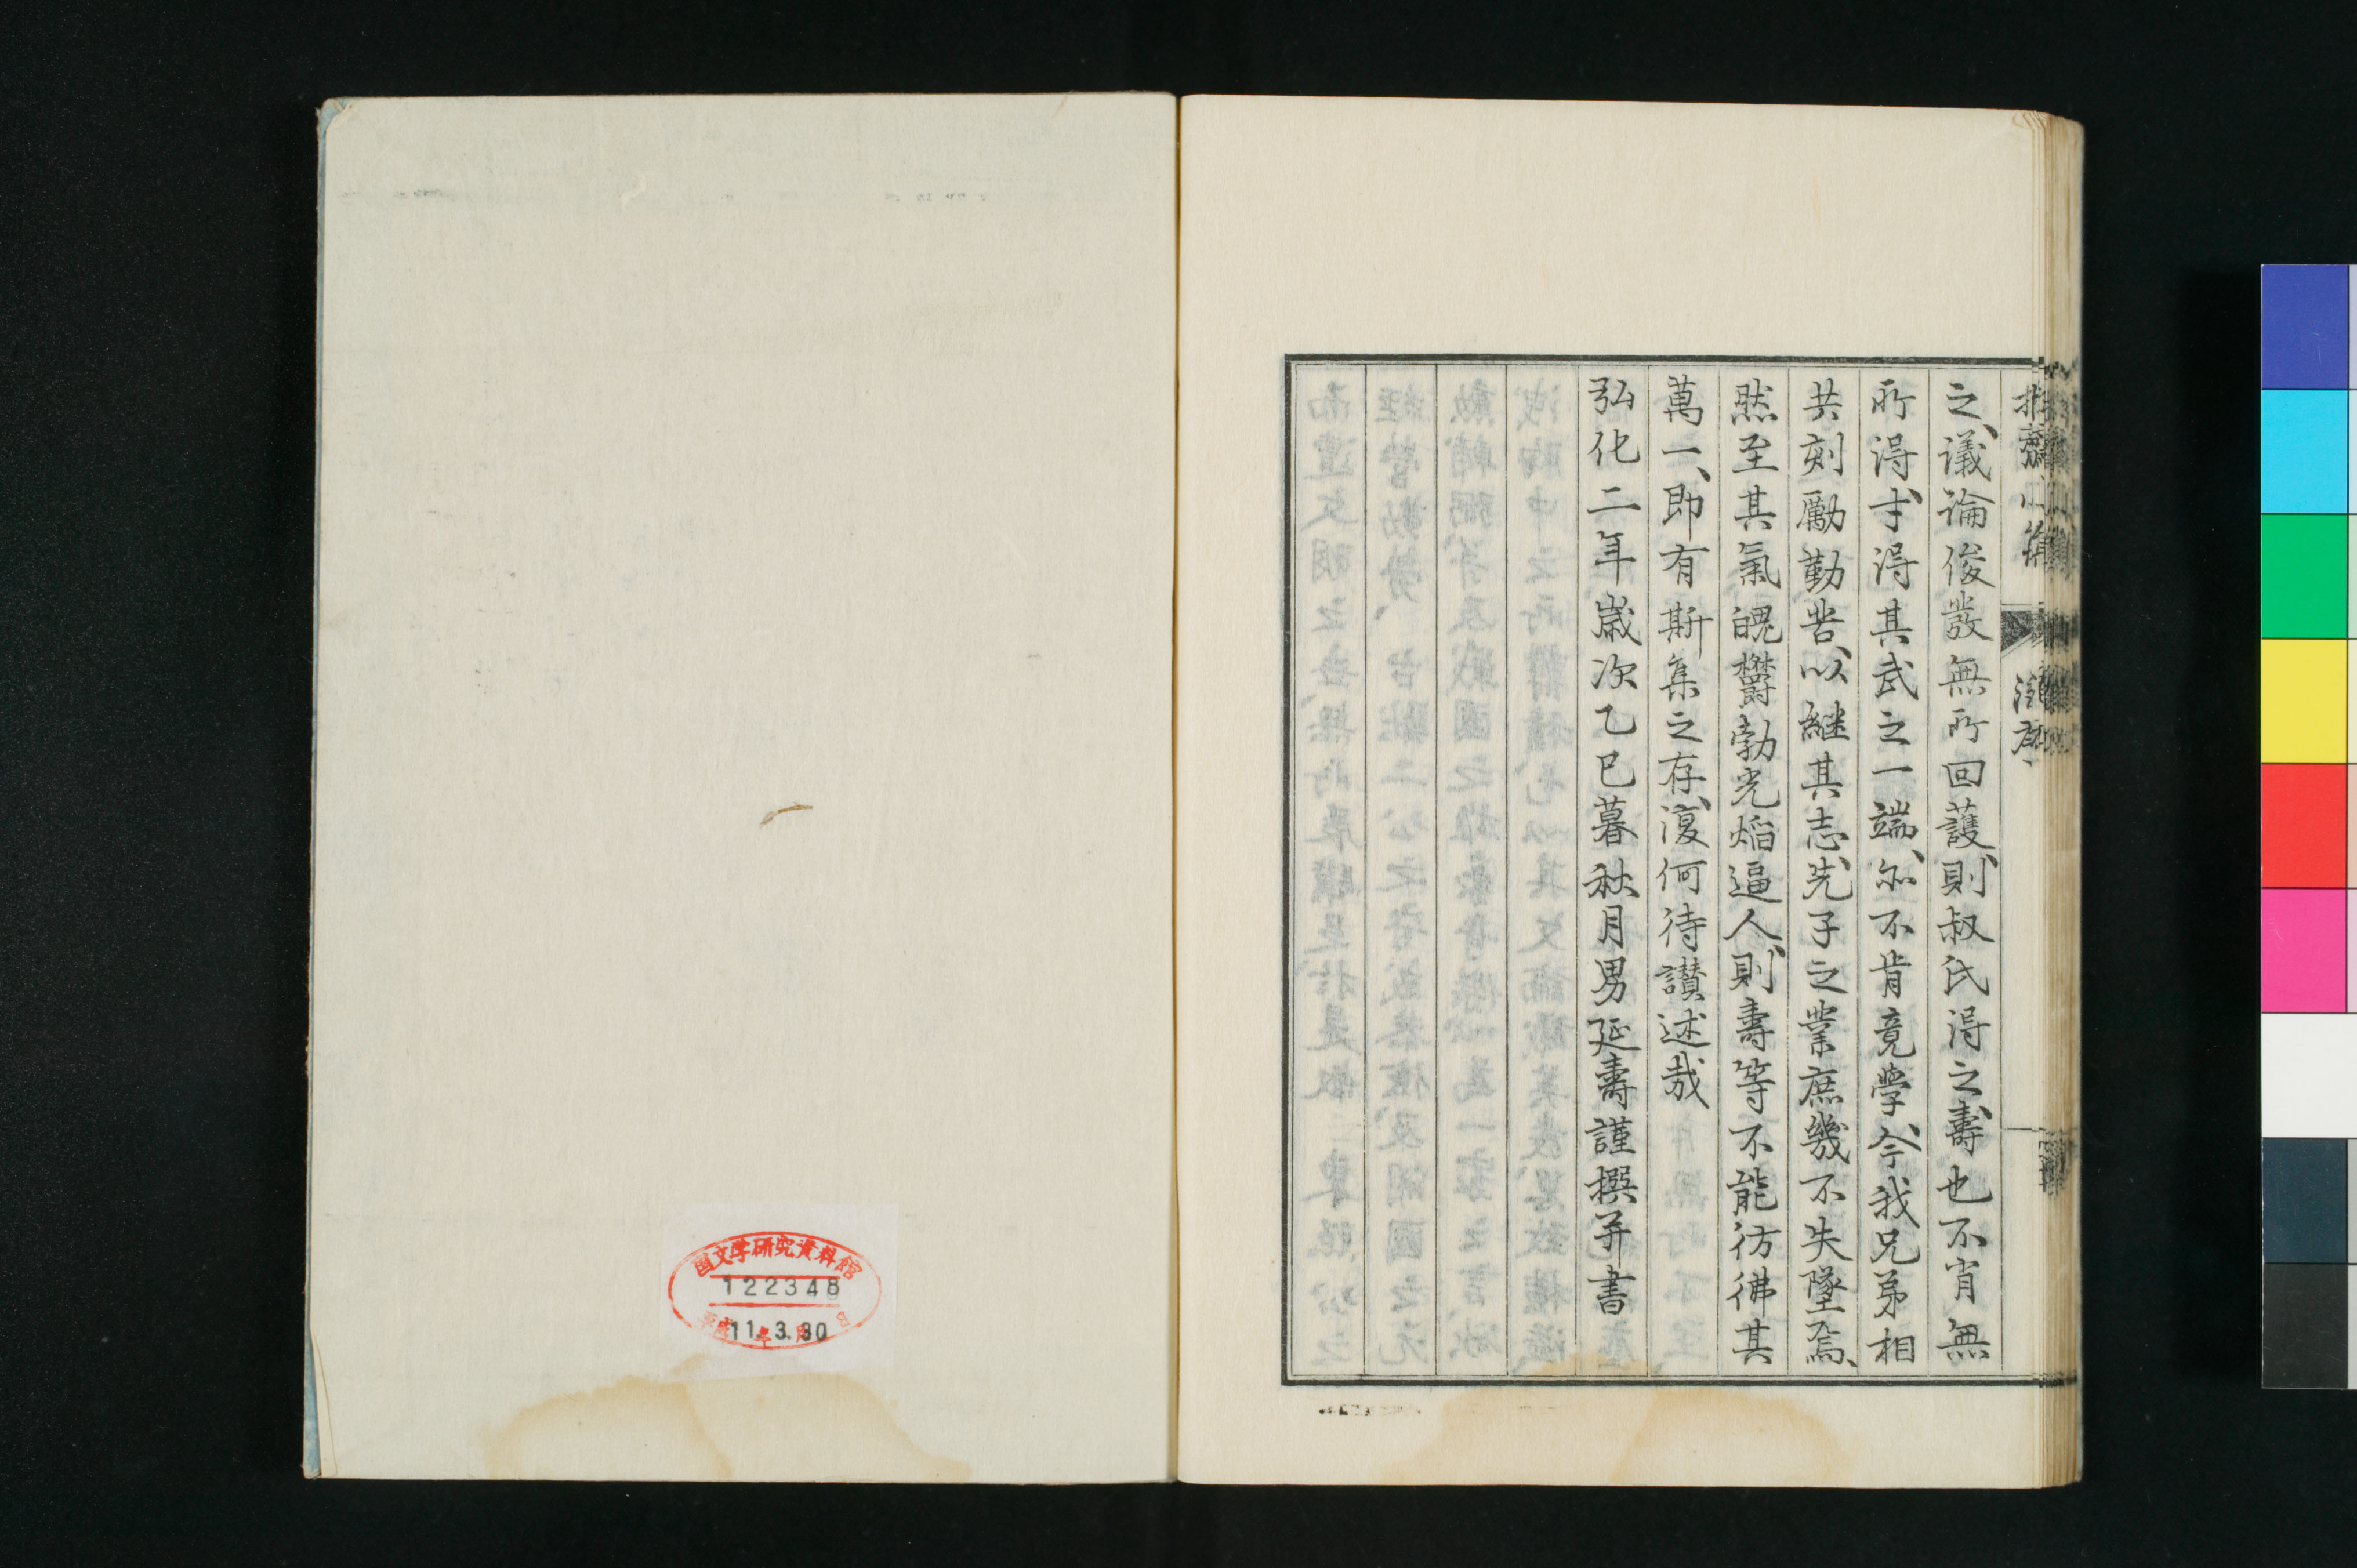 之、議論俊發無所回護、則叔氏得之、壽也不肖無
所得、于得其武之一端、尓不肯竟學、今我兄弟相
共刻勵勤苦、以継其志、先子之業庶幾不失墜焉、
然至其氣魄欝勃光焰逼人、則壽等不能彷彿其
萬一、即有斯集之存、復何待讃述哉
弘化二年歳次乙巳暮秋月男延壽謹撰并書
国文学研究資料館
122348
平成11年3月30日